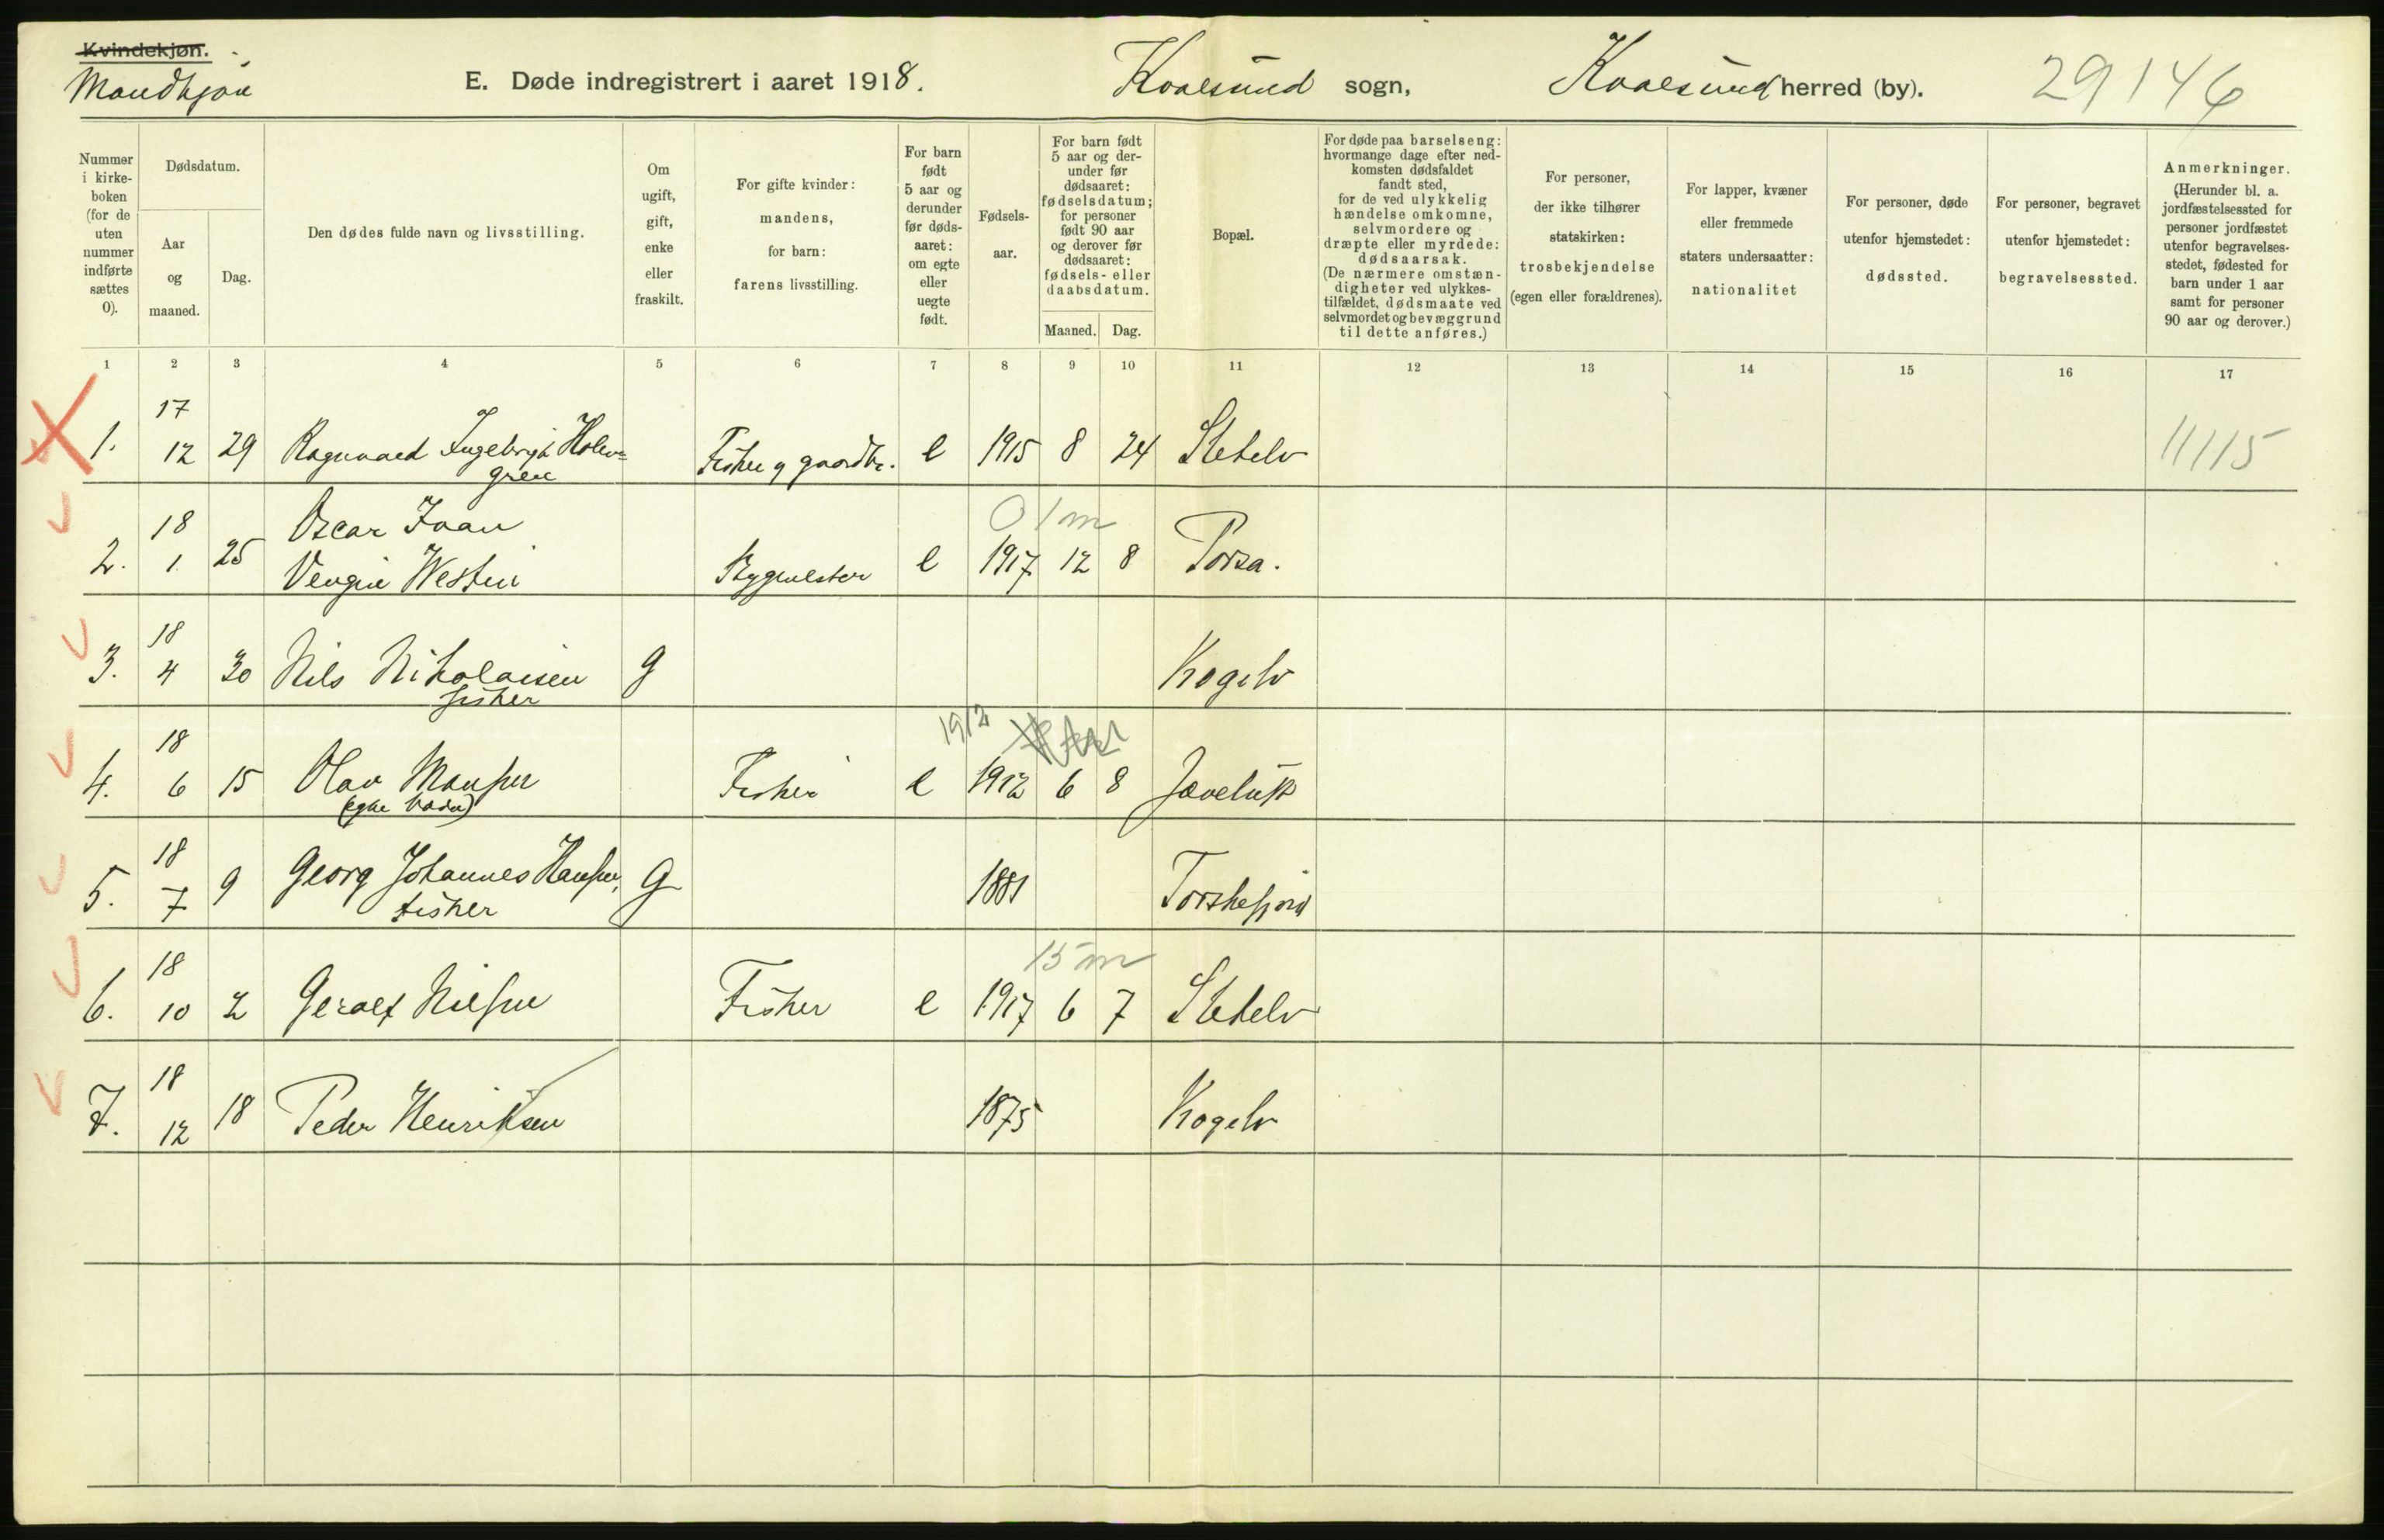 Kvindekjøn.
Mandkjøn
E. Døde indregistrert i aaret 1918.
Kvalsund sogn,
Kvalsund herred (by).
29146
Nummer i kirke- boken (for de uten nummer indførte sættes 0).
Dødsdatum.
Aar og maaned.
Dag.
Den dødes fulde navn og livsstilling.
Om ugift, gift, enke eller fraskilt.
For gifte kvinder: mandens, for barn: farens livsstilling.
For barn født 5 aar og derunder før døds- aaret: om egte eller uegte født.
Fødsels- aar.
For barn født 5 aar og der- under før dødsaaret: fødselsdatum; for personer født 90 aar og derover før dødsaaret: fødsels- eller daabsdatum.
Maaned. Dag.
Bopæl.
For døde paa barselseng: hvormange dage efter ned- komsten dødsfaldet fandt sted, for de ved ulykkelig hændelse omkomne, selvmordere og dræpte eller myrdede: dødsaarsak. (De nærmere omstæn- digheter ved ulykkes- tilfældet, dødsmaate ved selvmordet og bevæggrund til dette anføres.)
For personer, der ikke tilhører statskirken: trosbekjendelse (egen eller forældrenes).
For lapper, kvæner eller fremmede staters undersaatter: nationalitet
For personer, døde utenfor hjemstedet: dødssted.
For personer, begravet utenfor hjemstedet: begravelsessted.
Anmerkninger. (Herunder bl. a. jordfæstelsessted for personer jordfæstet utenfor begravelses- stedet, fødested for barn under 1 aar samt for personer 90 aar og derover.)
1 2 3 4 5 6 7 8 9 10 11 12 13 14 15 16 17
17
1. 12 29 Ragnvald Ingebrigt Holm= Fisker og gaardbr. e 1915 8 24 Stetelv 11115
gren
18 Oscar Ivan 0 1 m
2. 1 25 Westin Bygmester e 1917 12 8 Porsa.
18
3. 4 30 Nils Nikolaisen g Kogelv
fisker
18 1912
4. 6 15 Olav Fisker e 1912 6 8
18
5. 7 9 Georg Johannes Hansen, G 1881 Torskefjord
fisker
18 15 m
6. 10 2 Nilsen Fisker e 1917 6 7 Stetelv
18
7. 12 18 Peder Henriksen 1875 Kogelv